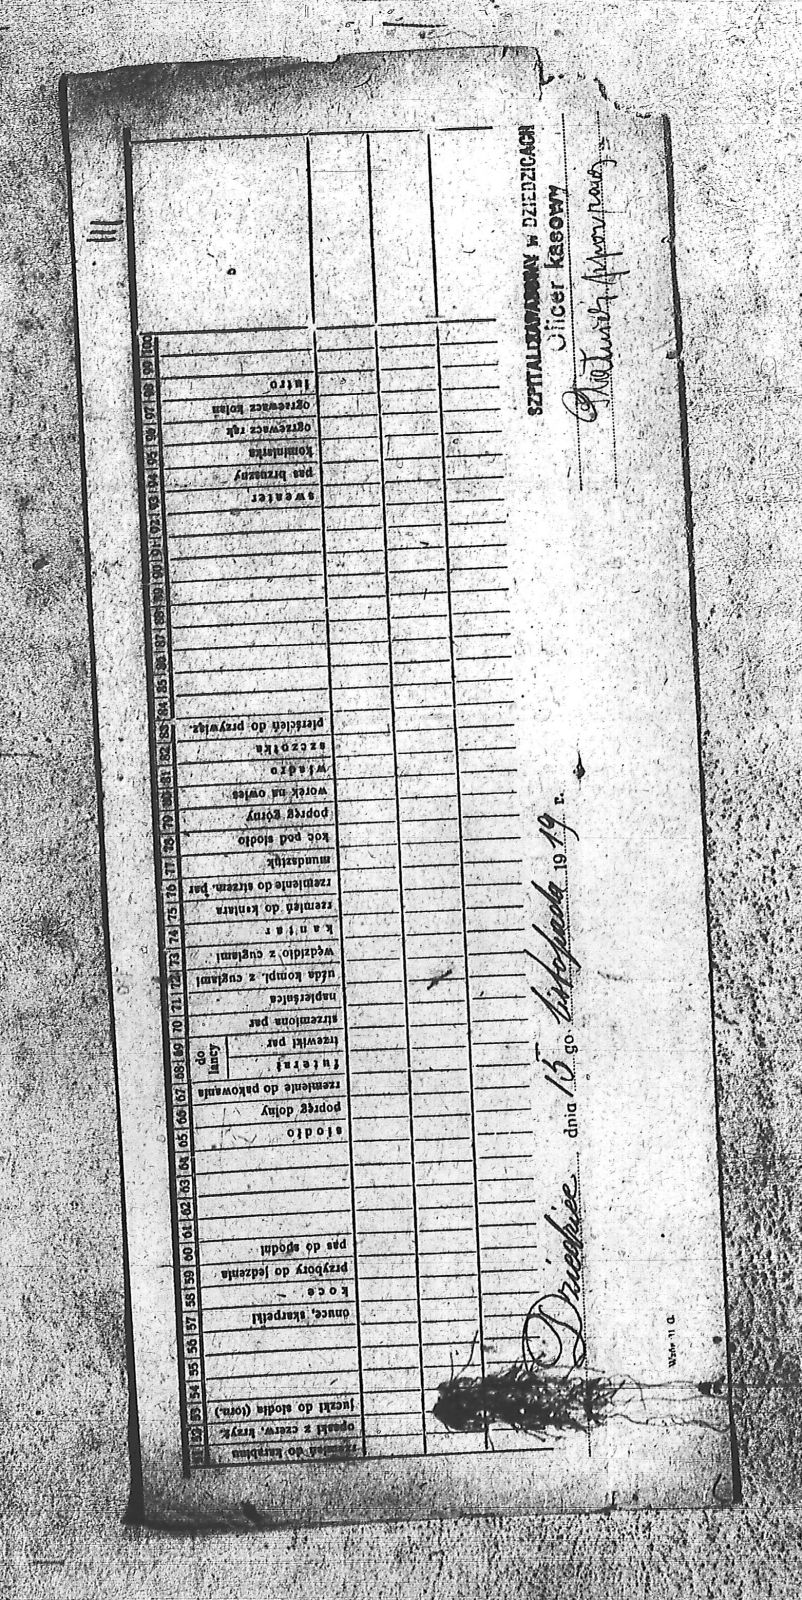 III
51 rzemień do karabinu
52 opaski z czerw. krzyż.
53 juczki do siodła (torn.)
54
55
56
57 onuce, skarpetki
58 koce
59 przybory do jedzenia
60 pas do spodni
61
62
63
64
65 siodło
66 popręg dolny
67 rzemienie do pakowania
do lancy
68 futerał
69 trzewiki par
70 strzemiona par
71 napierśnica
72 uzda kompl. z cuglami
73 wędzidło z cuglami
74 kantar
75 rzemień do kantara
76 rzemienie do strzem. par
77 mundsztuk
78 koc pod siodło
79 popręg górny
80 worek na owies
81 wiadro
82 szczotka
83 pierścień do przywiąz.
84
85
86
87
88
89
90
91
92
93 sweater
94 pas brzuszny
95 kominiarka
96 ogrzewacz rąk
97 ogrzewacz kolan
98 futro
99
100
Dziedzice dnia 15 go listopada 1919 r.
SZPITAL W DZIEDZICACH
Oficer kasowy